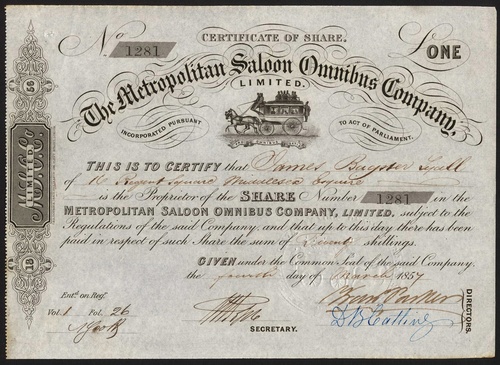 CERTIFICATE OF SHARE.
No 1281
£ONE
The Metropolitan Saloon Omnibus Company,
LIMITED.
INCORPORATED PURSUANT
TO ACT OF PARLIAMENT.
THIS IS TO CERTIFY that James Bagster Lyall
of 18 Regent Square Middlesex Esquire
is the Proprietor of the SHARE Number 1281 in the
METROPOLITAN SALOON OMNIBUS COMPANY, LIMITED, subject to the
Regulations of the said Company; and that up to this day there has been
paid in respect of such Share the sum of Twenty shillings.
GIVEN under the Common Seal of the said Company
the fourth day of March 1857
Entd. on Reg.
Vol. 1 Fol. 26
SECRETARY.
DIRECTORS.
18
LIMITED
56